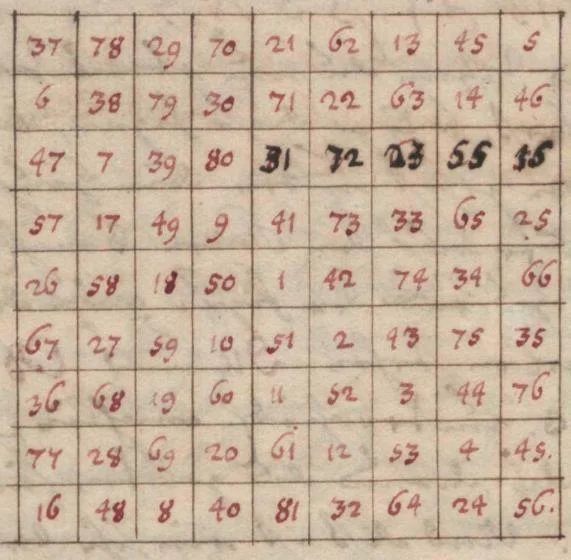 37 78 29 70 21 62 13 45 5
6 38 79 30 71 22 63 14 46
47 7 39 80 31 72 23 55 15
57 17 49 9 41 73 33 65 25
26 58 18 50 1 42 74 34 66
67 27 59 10 51 2 43 75 35
36 68 19 60 11 52 3 44 76
77 28 69 20 61 12 53 4 45.
16 48 8 40 81 32 64 24 56.